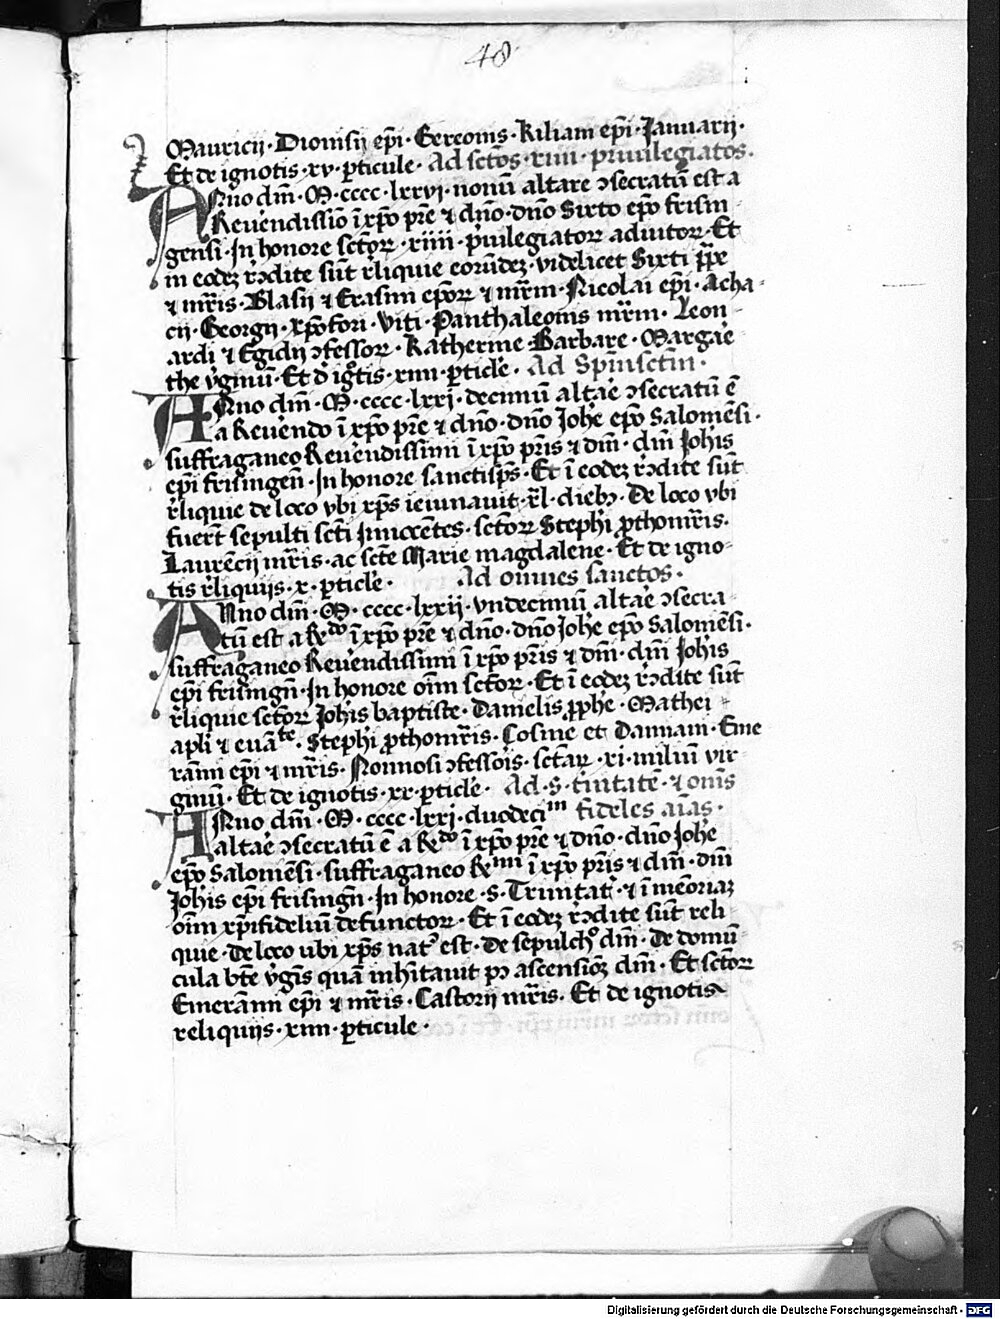 48
Mauricij · Dionisij ep̄i · Gereonis · Kiliani ep̄i · Januarij ·
Et de ignotis · xv · ꝑticule · Ad sctōs · xiiii · priuilegiatos ·
ANno dm̄ · M · cccc · lxxvi · nonū altare ↄsecratū est a
Reuēndissīo ī xp̄o pr̄e ⁊ dn̄o · dn̄o Sixto ep̄o frisin
gensi · In honore sctōꝝ · xiiii · p̄uilegiatoꝝ adiutoꝝ · Et
in eodeꝫ rↄdite sūt r̄liquie eorūdeꝫ · videlicet Sixti pp̄e
⁊ mr̄is · Blasij ⁊ Erasmi ep̄oꝝ ⁊ mr̄m · Nicolai ep̄i · Acha-
cij · Georgij · xp̄ofori · Viti · Panthaleonis mr̄m · Leon
ardi ⁊ Egidij ↄfessoꝝ · Katherine · Barbare · Margāe
the v̄ginū · Et d̄ igōtis · xiiii · ꝑticl̄e · Ad Spm̄sctm̄ ·
ANno dm̄ · M · cccc · lxxj · decimū altāe ↄsecratū ē
a Reuēndo ī xp̄o pr̄e ⁊ dn̄o · dn̄o Joh̄e ep̄o Salomēsi ·
suffraganeo Reuēndissimi ī xp̄o pr̄is ⁊ dm̄ · dm̄ Joh̄is
ep̄i frisingen̄ · In honore sanctisp̄s · Et ī eodeꝫ rↄdite sūt
r̄liquie de loco vbi xp̄s ieiunauit · xl · diebꝫ · De loco vbi
fuer̄t sepulti sct̄i Innocētes · sctōꝝ Steph̄i ꝓthomr̄is ·
Laurēcij mr̄is · ac sctē Marie magdalene · Et de igno-
tis r̄liquijs · x · ꝑticl̄e · Ad omnes sanctos ·
ANno dm̄ · M · cccc · lxxii · vndecimū altāe ↄsecra-
tū est a Rᵈᵒ ī xp̄o pr̄e ⁊ dn̄o · dn̄o Joh̄e ep̄o Salomēsi ·
suffraganeo Reuēndissimi ī xp̄o pr̄is ⁊ dm̄ · dm̄ Joh̄is
ep̄i frisingn̄ · In honore oīm sctōꝝ · Et ī eodeꝫ rↄdite sūt
r̄liquie sctōꝝ Joh̄is baptiste · Danielis ꝓph̄e · Mathei
apl̄i ⁊ euāᵗᵉ · Steph̄i ꝓthomr̄is · Cosme et Damiani · Eme
rāmi ep̄i ⁊ mr̄is · Nonnosi ↄfessōis · sctāꝝ · xi · miliū vir-
ginū · Et de ignotis · xx · ꝑticl̄e · Ad · S · tinitatē · ⁊ om̄s
ANno dm̄ · M · cccc · lxxj · duodeciᵐ fideles aīas ·
altāe ↄsecratū ē a Rᵈᵒ ī xp̄o pr̄e ⁊ dn̄o · dn̄o Joh̄e
ep̄o Salomēsi · suffraganeo Rᵐⁱ ī xp̄o pr̄is ⁊ dm̄ · dm̄
Joh̄is ep̄i frisingn̄ · In honore · S · Trinitat̄ · ⁊ ī memōriaꝫ
oīm xp̄ifideliū defunctoꝝ · Et ī eodeꝫ rↄdite sūt reli
quie · de loco ubi xp̄s nat⁹ est · De sepulchᵒ dm̄ · De domū
cula btē v̄gīs quā inh̄itauit pꝰ ascensiōꝫ dm̄ · Et sctōꝝ
Emerāmi ep̄i ⁊ mr̄is · Castorij mr̄is · Et de ignotis
reliquijs · xiiii · ꝑticule ·
Digitalisierung gefördert durch die Deutsche Forschungsgemeinschaft · DFG